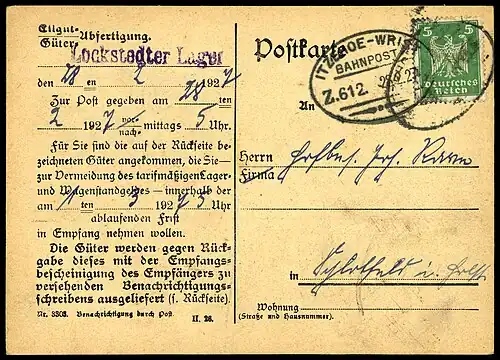 Eilgut-
Güter-
Abfertigung.
Lockstedter Lager
den 28 ten 2 1927
Zur Post gegeben am 28 ten
2 1927 vor-
nach- mittags 5 Uhr.
Für Sie sind die auf der Rückseite be-
zeichneten Güter angekommen, die Sie—
zur Vermeidung des tarifmäßigen Lager-
und Wagenstandgeldes — innerhalb der
am 1 ten 3 1927 5 Uhr
ablaufenden Frist
in Empfang nehmen wollen.
Die Güter werden gegen Rück-
gabe dieses mit der Empfangs-
bescheinigung des Empfängers zu
versehenden Benachrichtigungs-
schreibens ausgeliefert (s. Rückseite).
Nr. 3303. Benachrichtigung durch Post. II. 26.
Postkarte
ITZEHOE-WRI
BAHNPOST
Z.612
5 5
Deutsches
Reich
An
Herrn
Firma
in Schlotfeld i. Holst.
Wohnung
(Straße und Hausnummer).